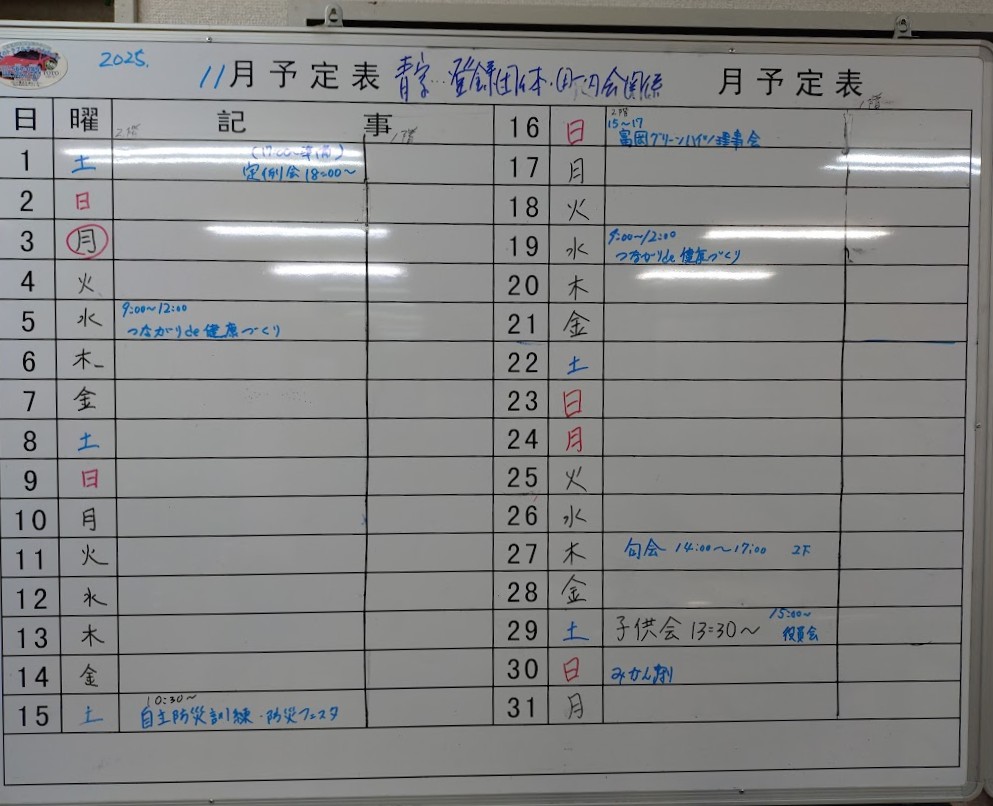 2025.
11月予定表 青字…登録団体・町内会関係 月予定表
日 曜 記 事
2階 1階
1 土 (17:00~準備)
定例会 18:00~
2 日
3 月
4 火
5 水 9:00~12:00
つながりde健康づくり
6 木
7 金
8 土
9 日
10 月
11 火
12 水
13 木
14 金
15 土 10:30~
自主防災訓練・防災フェスタ
2階 1階
16 日 15~17
富岡グリーンハイツ理事会
17 月
18 火
19 水 9:00~12:00
つながりde健康づくり
20 木
21 金
22 土
23 日
24 月
25 火
26 水
27 木 句会 14:00~17:00 2F
28 金
29 土 子供会 13:30~ 15:00~
役員会
30 日 みかん狩り
31 月